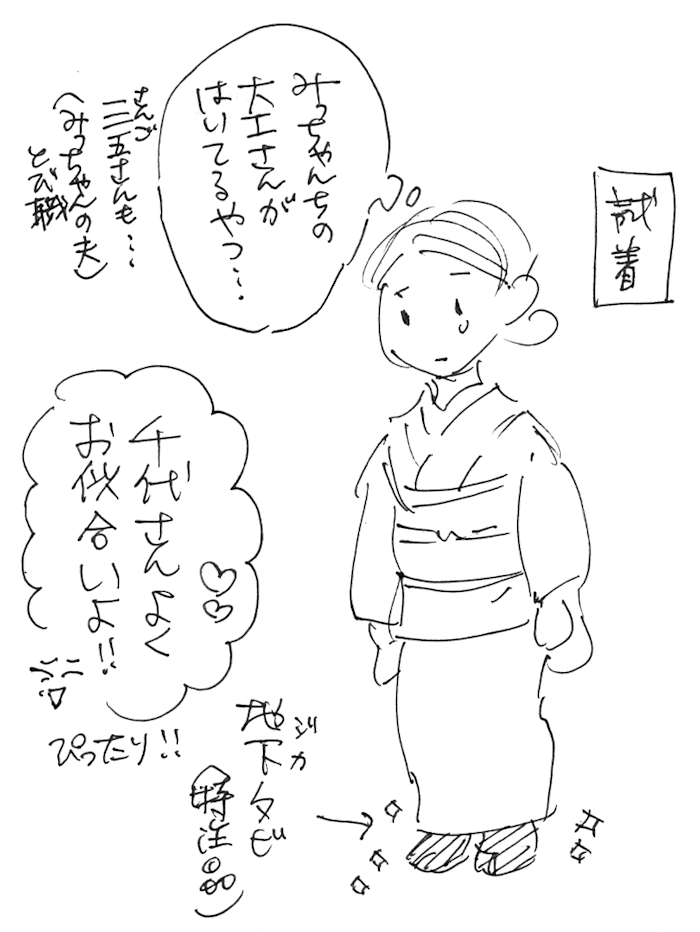 試着
みっちゃんちの
大工さんが
はいてるやつ…
さんご
三五さんも…
(みっちゃんの夫)
とび職
千代さんよく
お似合いよ!!
ぴったり!!
ジカ
地下タビ
(特注品)